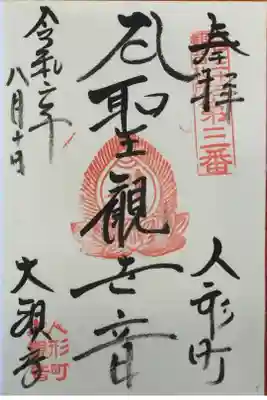 奉拝
第三番
人形町
聖観世音
大観音
人形町
大観音
令和六年
八月十日